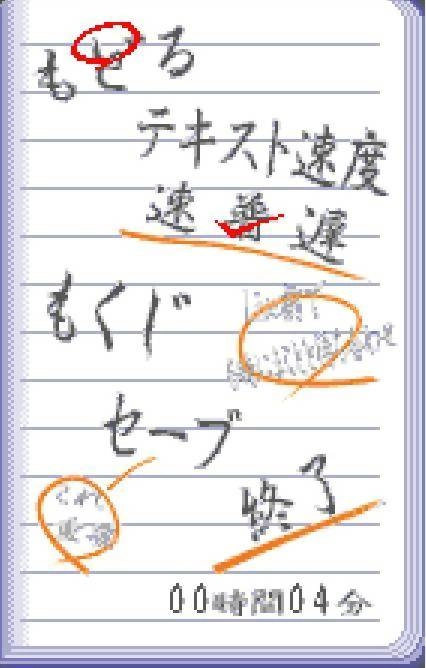 もどる
テキスト速度
速 普 遅
もくじ
セーブ
終了
00時間04分